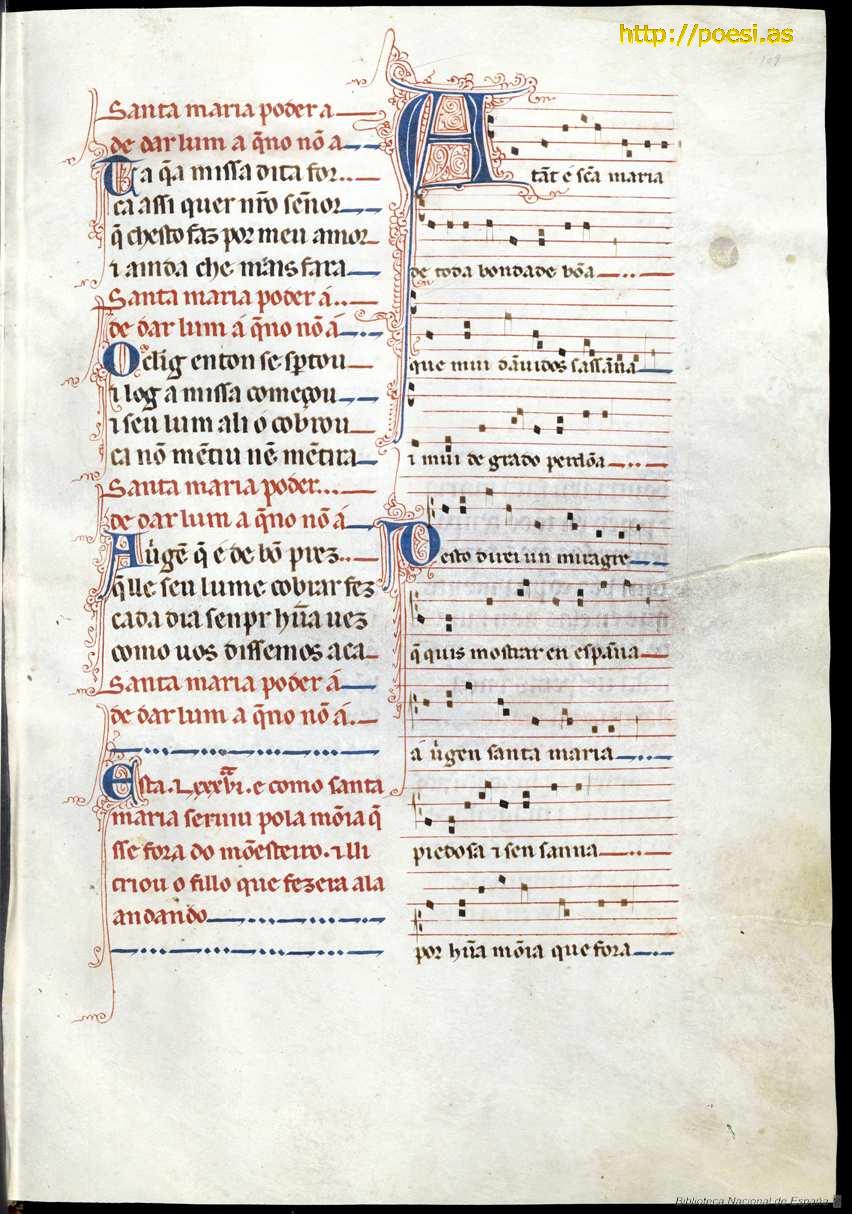 http://poesi.as
Santa maria poder a
de dar lum a q̄no nō a
Ta q̄a missa dita for
ca assi quer nr̄o sen̄or
q̄ chesto faz por meu amor
⁊ ainda che mais fara
Santa maria poder á
de dar lum á q̄no nō á
O clig enton se
⁊ log a missa começou
⁊ seu lum ali ó cobrou
ca nō mētiu nē mētira
Santa maria poder
de dar lum a q̄no nō á
A uirgē q̄ é de bō prez
q̄lle seu lume cobrar fez
cada dia senpr hūa uez
como uos dissemos aca
Santa maria poder á
de dar lum a q̄no nō á
Esta .Lxxxvi. e como santa
maria seruiu pola mōia q̄
sse fora do mōesteiro. ⁊ lli
criou o fillo que fezera ala
andando
Atāt é sc̄a maria
de toda bondade bōa
que mui dāuidos sassan̄a
⁊ mui de grado perdōa
Desto direi un miragre
q̄ quis mostrar en espan̄a
á uirgen santa maria
piedosa ⁊ sen sanna
por hūa mōia que fora
Biblioteca Nacional de España